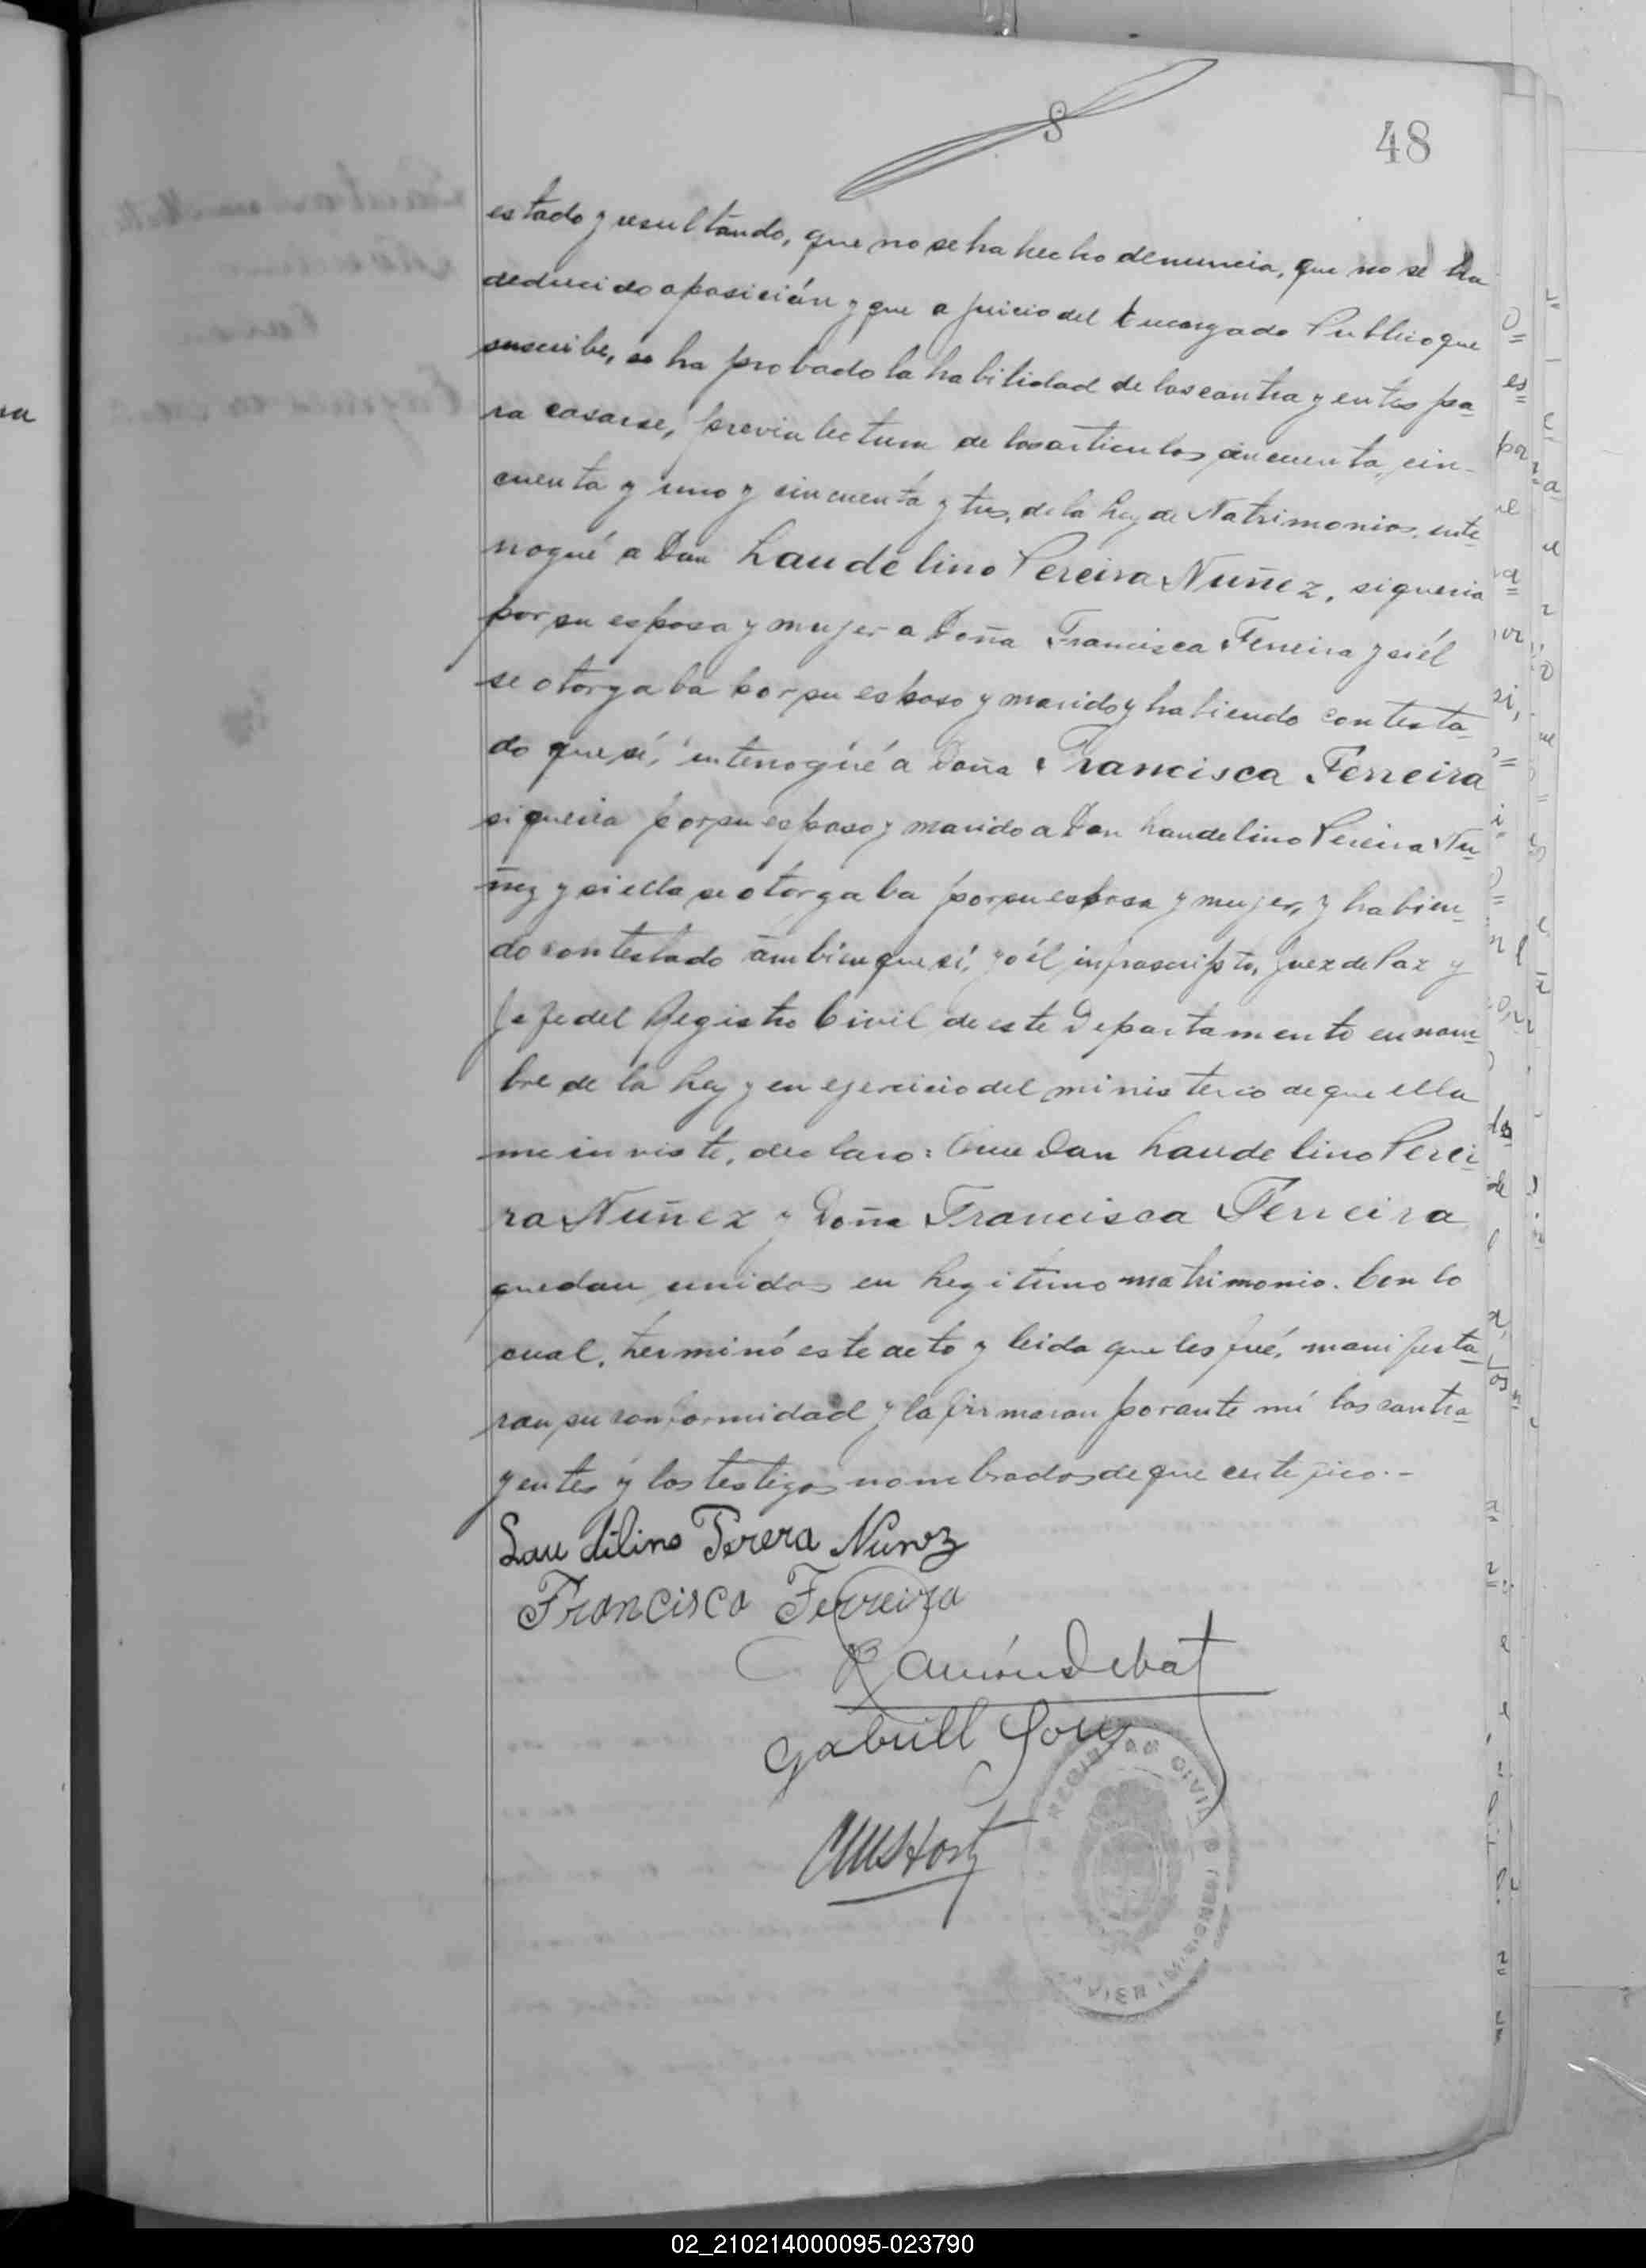 8
48
estado y resultando, que no se ha hecho denuncia, que no se ha
deducido oposición y que a juicio del Encargado Publico que
suscribe, se ha probado la habilidad de los contrayentes pa=
ra casarse, previa lectura de los articulos cincuenta, cin-
cuenta y uno y cincuenta y tres, de la Ley de Matrimonios, inte=
rrogué a Don Laudelino Pereira Nuñez, si queria
por su esposa y mujer a Doña Francisca Ferreira y si él
se otorgaba por su esposo y marido y habiendo contesta=
do que sí, interrogué a Doña Francisca Ferreira
si queria por su esposo y marido a Don Laudelino Pereira Nu=
ñez y si ella se otorgaba por su esposa y mujer, y habien=
do contestado tambien que sí, yo él infrascripto, Juez de Paz y
Jefe del Registro Civil de este Departamento en nom=
bre de la Ley y en ejercicio del ministerio de que ella
me inviste, declaro: Que Don Laudelino Perei=
ra Nuñez y Doña Francisca Ferreira
quedan unidos en legitimo matrimonio. Con lo
cual, terminó este acto y leida que les fué, manifesta=
ron su conformidad y la firmaron por ante mí los contra=
yentes y los testigos nombrados de que certifico.-
Laudilino Perera Nunez
Francisca Ferreira
Ramón Debat
Gabriell
REGISTRO CIVIL
02_210214000095-023790